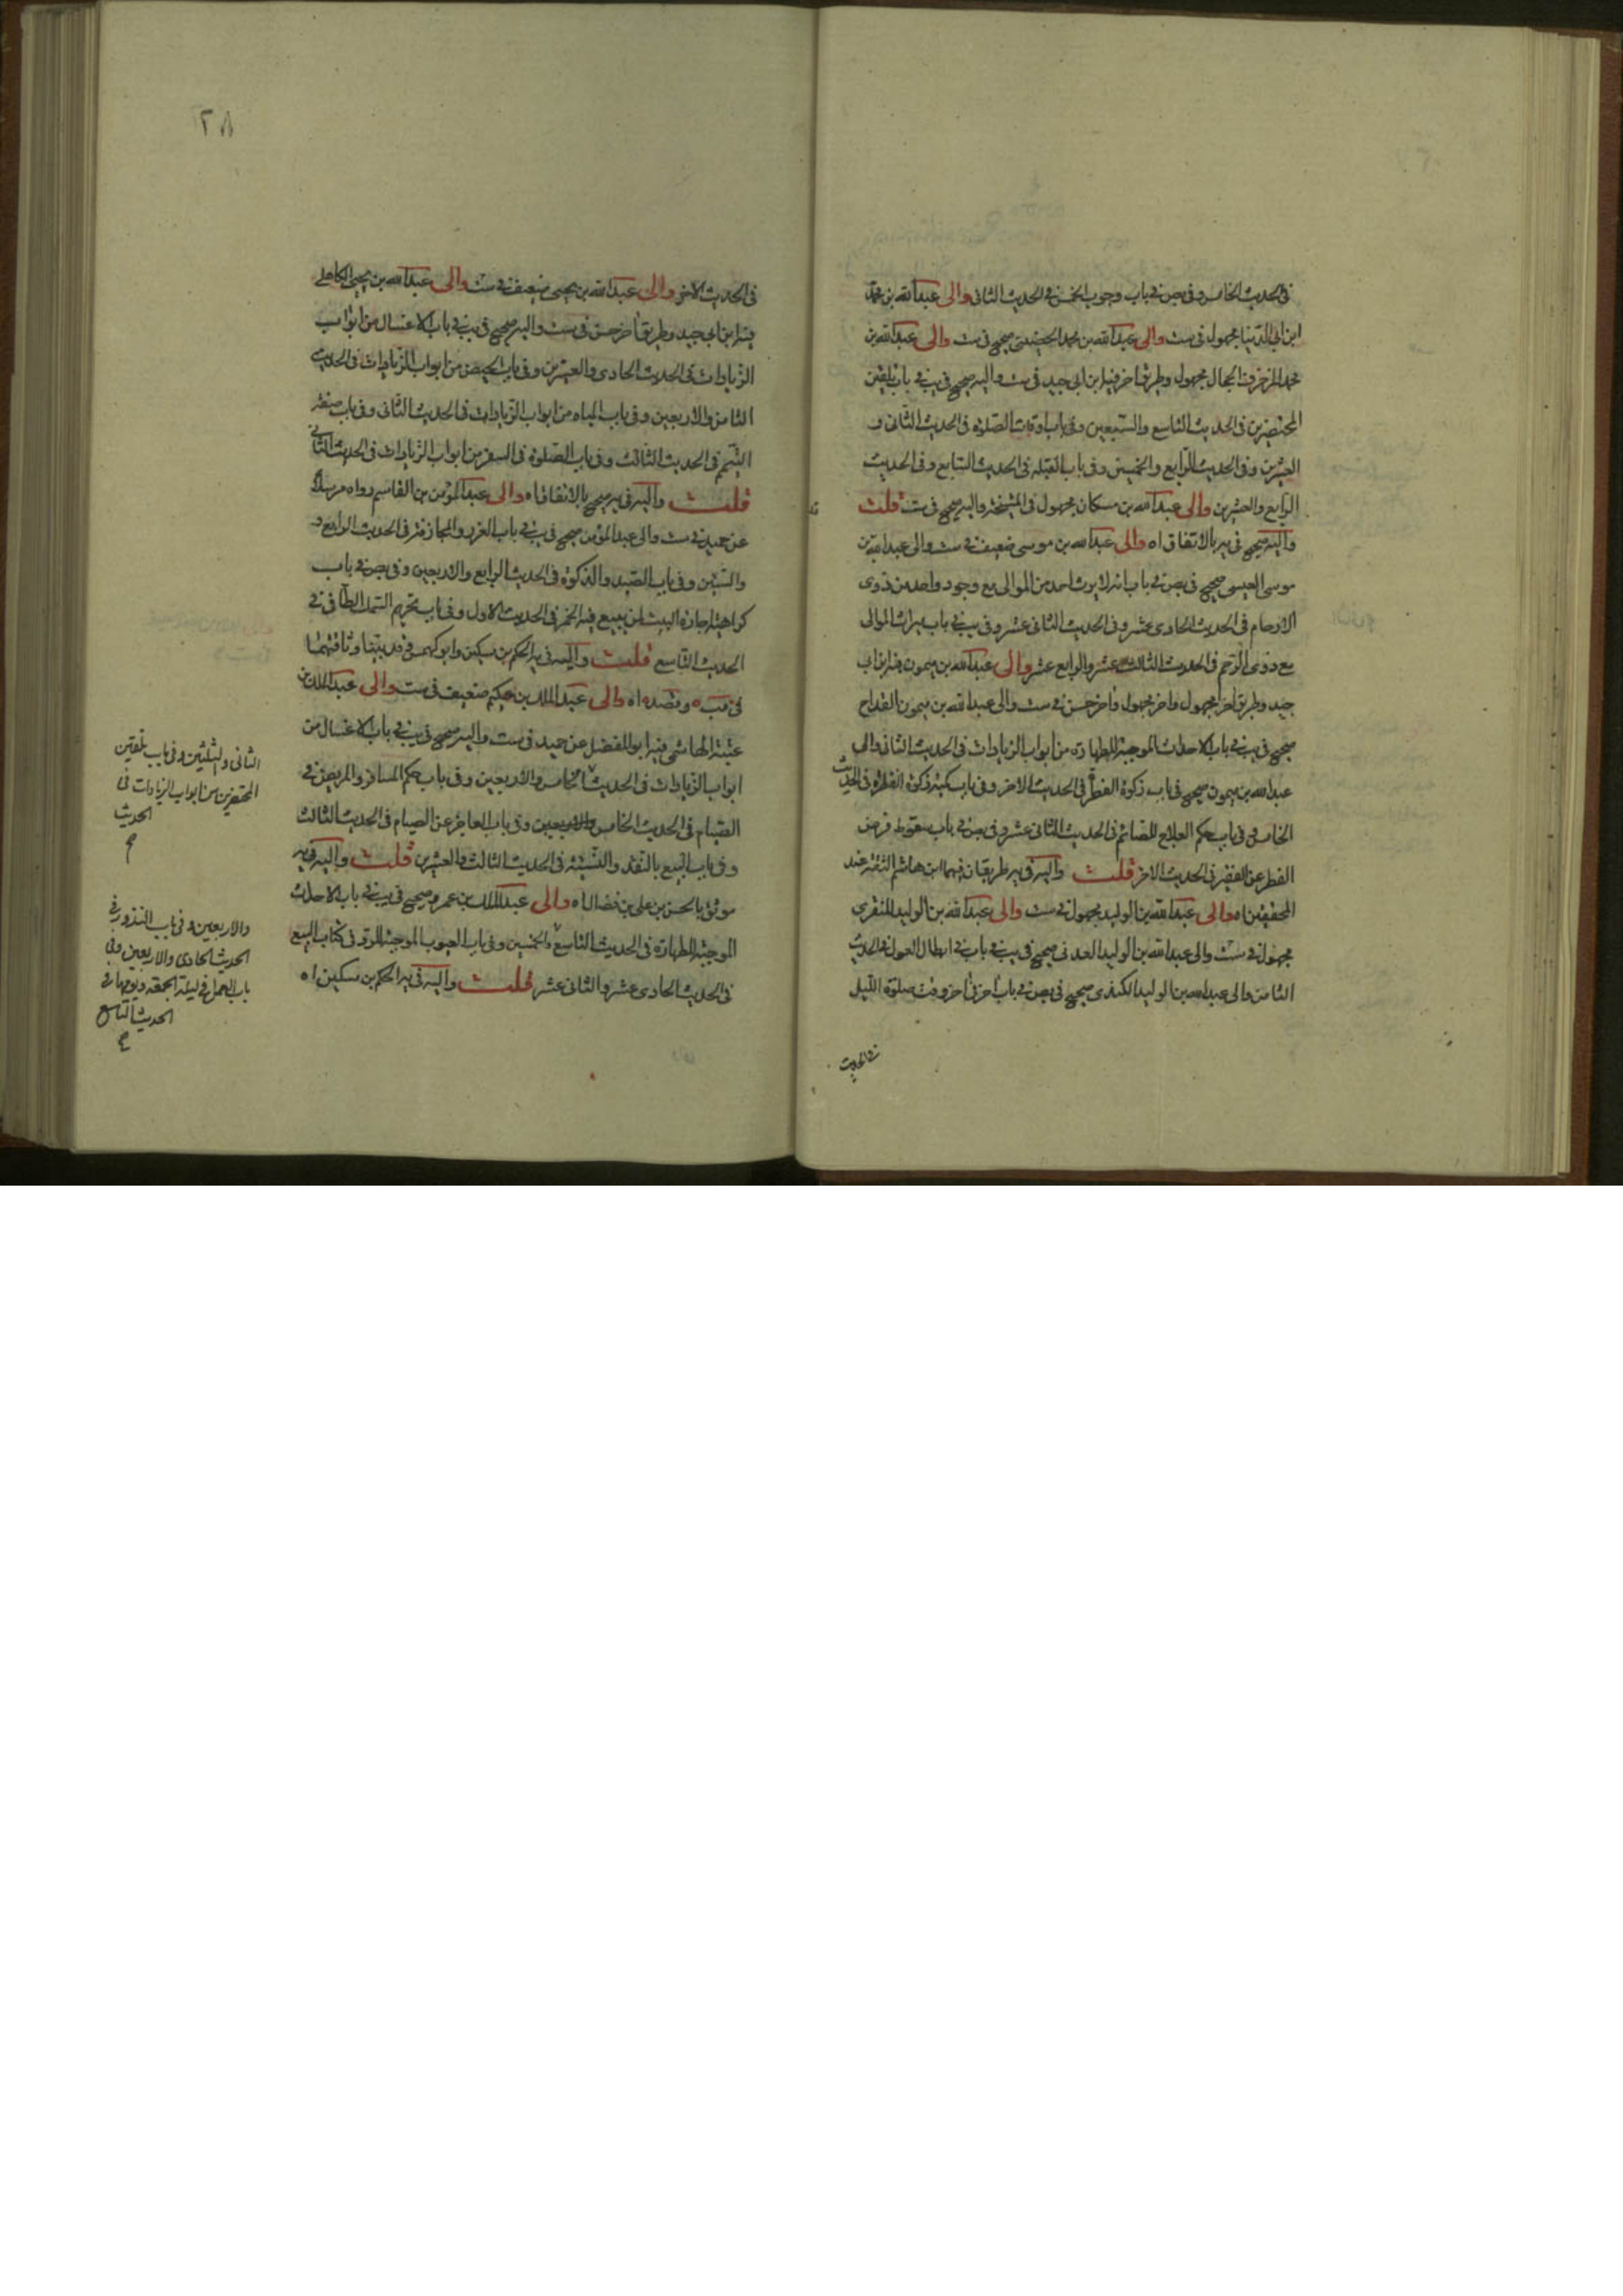 فى الحديث الخامس وفى بص فى باب وجوب الخمس فى الحديث الثانى والى عبدالله بن محمد
ابن ابى الدنيا مجهول فى ست والى عبدالله بن محمد الحضينى صحيح فى ست والى عبدالله بن
محمد المزخرف الحجال مجهول وطريق اخر فيه ابن ابى جيد فى ست واليه صحيح فى يب فى باب تلقين
المحتضرين فى الحديث التاسع والسبعين وفى باب اوقات الصلوة فى الحديث الثانى و
العشرين وفى الحديث الرابع والخمسين وفى باب القبلة فى الحديث السابع وفى الحديث
الرابع والعشرين والى عبدالله بن مسكان مجهول فى المشيخة واليه صحيح فى ست قلت
واليه صحيح فى يه بالاتفاق اه والى عبدالله بن موسى ضعيف فى ست والى عبدالله بن
موسى العبسى صحيح فى بص فى باب انه لا يرث احد من الموالى مع وجود واحد من ذوى
الارحام فى الحديث الحادى عشر وفى الحديث الثانى عشر وفى يب فى باب ميراث الموالى
مع ذوى الرحم فى الحديث الثالث عشر والرابع عشر والى عبدالله بن ميمون فيه ابن ابى
جيد وطريق اخر مجهول واخر مجهول واخر حسن فى ست والى عبدالله بن ميمون القداح
صحيح فى يب فى باب الاحداث الموجبة للطهارة من ابواب الزيادات فى الحديث الثانى والى
عبدالله بن ميمون صحيح فى باب زكوة الفطرة فى الحديث الاخر وفى باب كمية زكوة الفطرة فى الحديث
الخامس وفى باب حكم العلاج للصائم فى الحديث الثانى عشر وفى بص فى باب سقوط فرض
الفطر عن الفقير فى الحديث الاخر قلت واليه فى يه طريقان فيهما ابن هاشم الثقة عند
المحققين اه والى عبدالله بن الوليد مجهول فى ست والى عبدالله بن الوليد المنقرى
مجهول فى ست والى عبدالله بن الوليد العدنى صحيح فى يب فى باب فى ابطال العول فى الحديث
الثامن والى عبدالله بن الوليد الكندى صحيح فى بص فى باب اخر وقت صلوة الليل
فى الحديث
٢٨
فى الحديث الاخر والى عبدالله بن يحيى ضعيف فى ست والى عبدالله بن يحيى الكاهلى
فيه ابن ابى جيد وطريق اخر حسن فى ست واليه صحيح فى يب فى باب الاغسال من ابواب
الزيادات فى الحديث الحادى والعشرين وفى باب الحيض من ابواب الزيادات فى الحديث
الثامن والاربعين وفى باب المياه من ابواب الزيادات فى الحديث الثانى وفى باب صفة
التيمم فى الحديث الثالث وفى باب الصلوة فى السفر من ابواب الزيادات فى الحديث الثانى
قلت واليه فى يه صحيح بالاتفاق اه والى عبدالمؤمن بن القاسم رواه مرسلا
عن حميد فى ست والى عبدالمؤمن صحيح فى يب فى باب الغرر والمجازفة فى الحديث الرابع و
والستين وفى باب الصيد والذكوة فى الحديث الرابع والاربعين وفى بص فى باب
كراهية اجارة البيت لمن يبيع فيه الخمر فى الحديث الاول وفى باب تحريم السمك الطافى فى
الحديث التاسع قلت واليه فى يه الحكم بن مسكين وابو كهمس وقد بينا وثاقتهما
فى عبدالملك بن حكيم ضعيف فى ست والى عبدالملك بن
عتبة الهاشمى فيه ابو المفضل عن حميد فى ست واليه صحيح فى يب فى باب الاغسال من
ابواب الزيادات فى الحديث الخامس والاربعين وفى باب حكم المسافر والمريض فى
الصيام فى الحديث الخامس والاربعين وفى باب العاجز عن الصيام فى الحديث الثالث
وفى باب البيع بالنقد والنسيئة فى الحديث الثالث والعشرين قلت واليه فى يه
موثق بالحسن بن على بن فضال اه والى عبدالملك بن عمرو صحيح فى يب فى باب الاحداث
الموجبة للطهارة فى الحديث التاسع والخمسين وفى باب العيوب الموجبة للرد فى كتاب البيع
فى الحديث الحادى عشر والثانى عشر قلت واليه فى يه الحكم بن مسكين اه
الثانى والثلثين وفى باب تلقين
المحتضرين من ابواب الزيادات فى
الحديث
والاربعين وفى باب النذور فى
الحديث الحادى والاربعين وفى
باب العمل فى ليلة الجمعة ويومها فى
الحديث التاسع